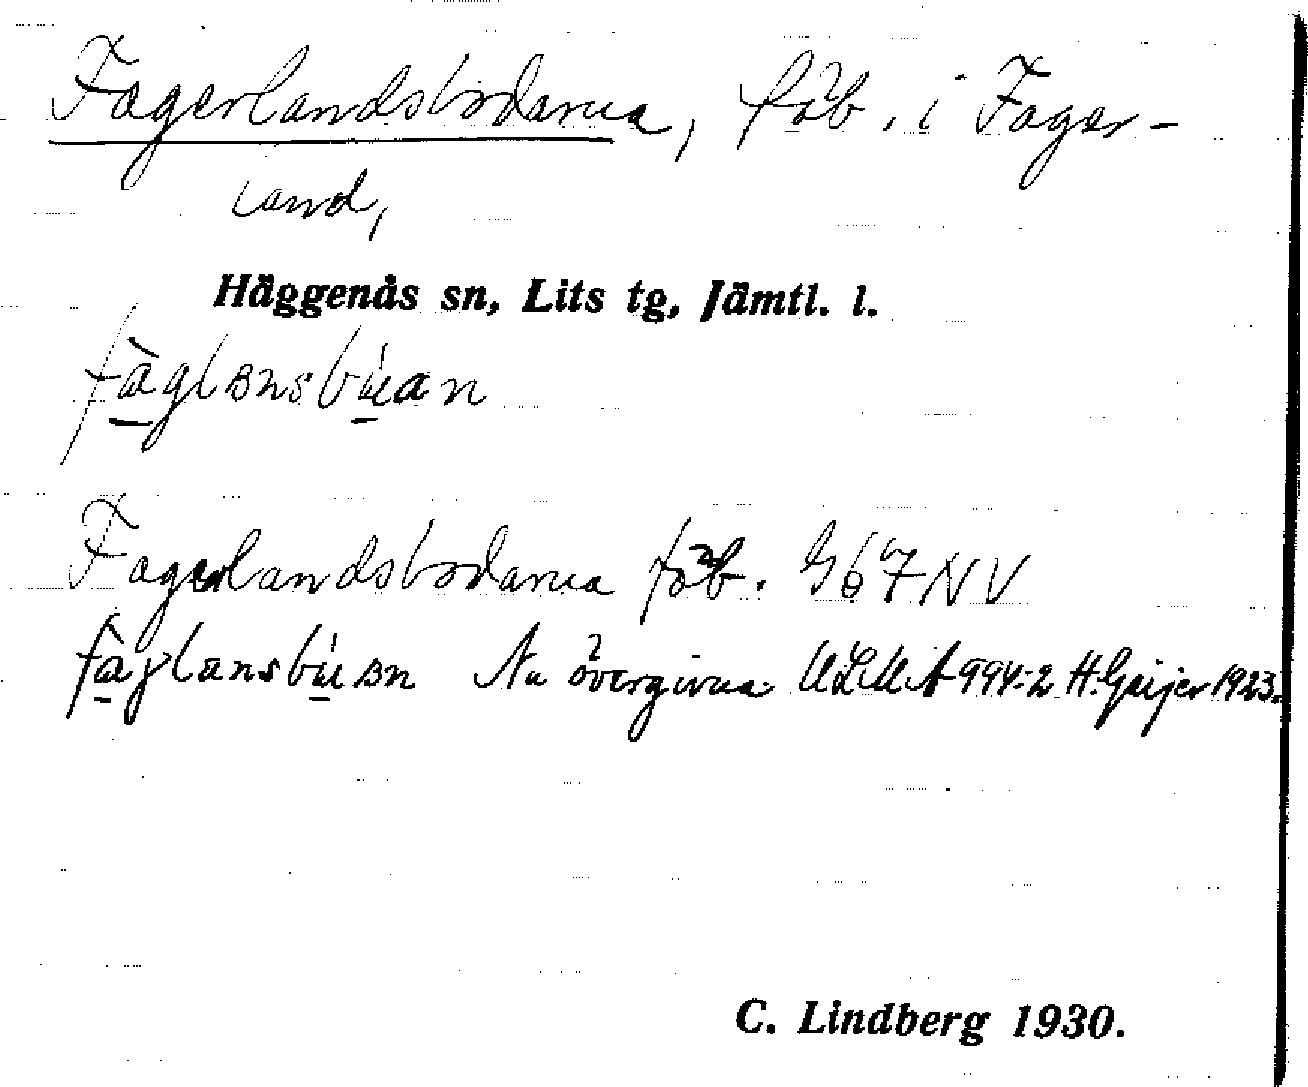 Fagerlandsbodarna, fäb. i Fager-
land,
Häggenås sn, Lits tg, Jämtl. l.
fàglansbúan
Fagerlandsbodarna fäb. G67NV
fàglansbúan Nu övergivna ULMA 994:2 H. Geijer 1923.
C. Lindberg 1930.